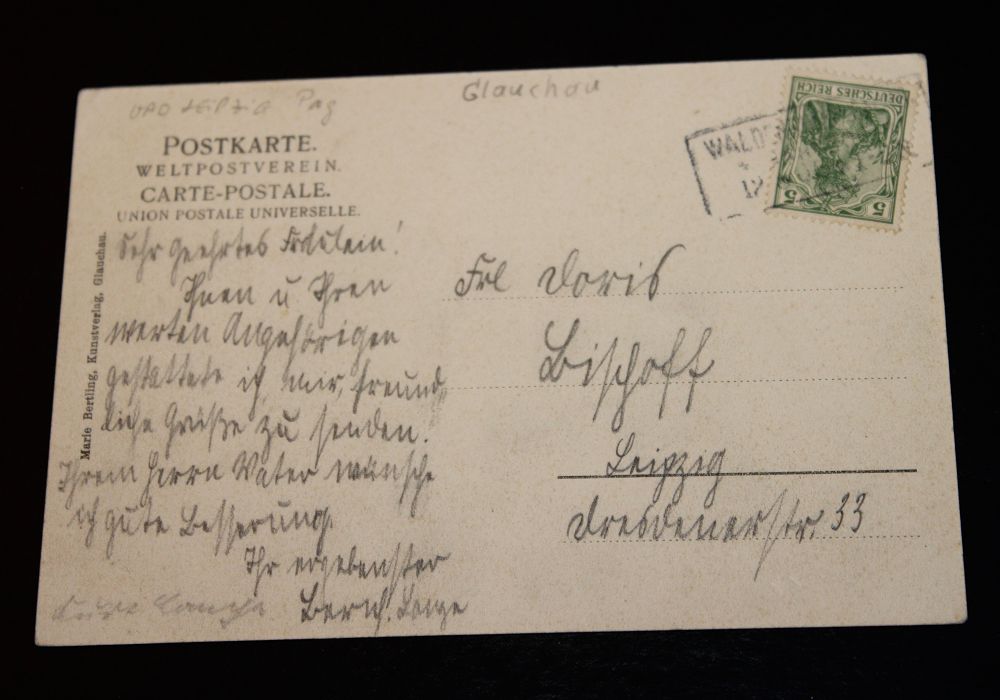 Glauchau
OPD Leipzig Pag
POSTKARTE.
WELTPOSTVEREIN.
CARTE-POSTALE.
UNION POSTALE UNIVERSELLE.
Marie Bertling, Kunstverlag, Glauchau.
DEUTSCHES REICH
5 5
WALD
12
Sehr geehrtes Fräulein!
Ihnen u Ihren
werten Angehörigen
gestattete ich mir, freund-
liche Grüße zu senden.
Ihrem Herrn Vater wünsche
ich gute Besserung.
Ihr ergebenster
Bernh. Lange
Frl Doris
Bischoff
Leipzig
Dresdenerstr. 33